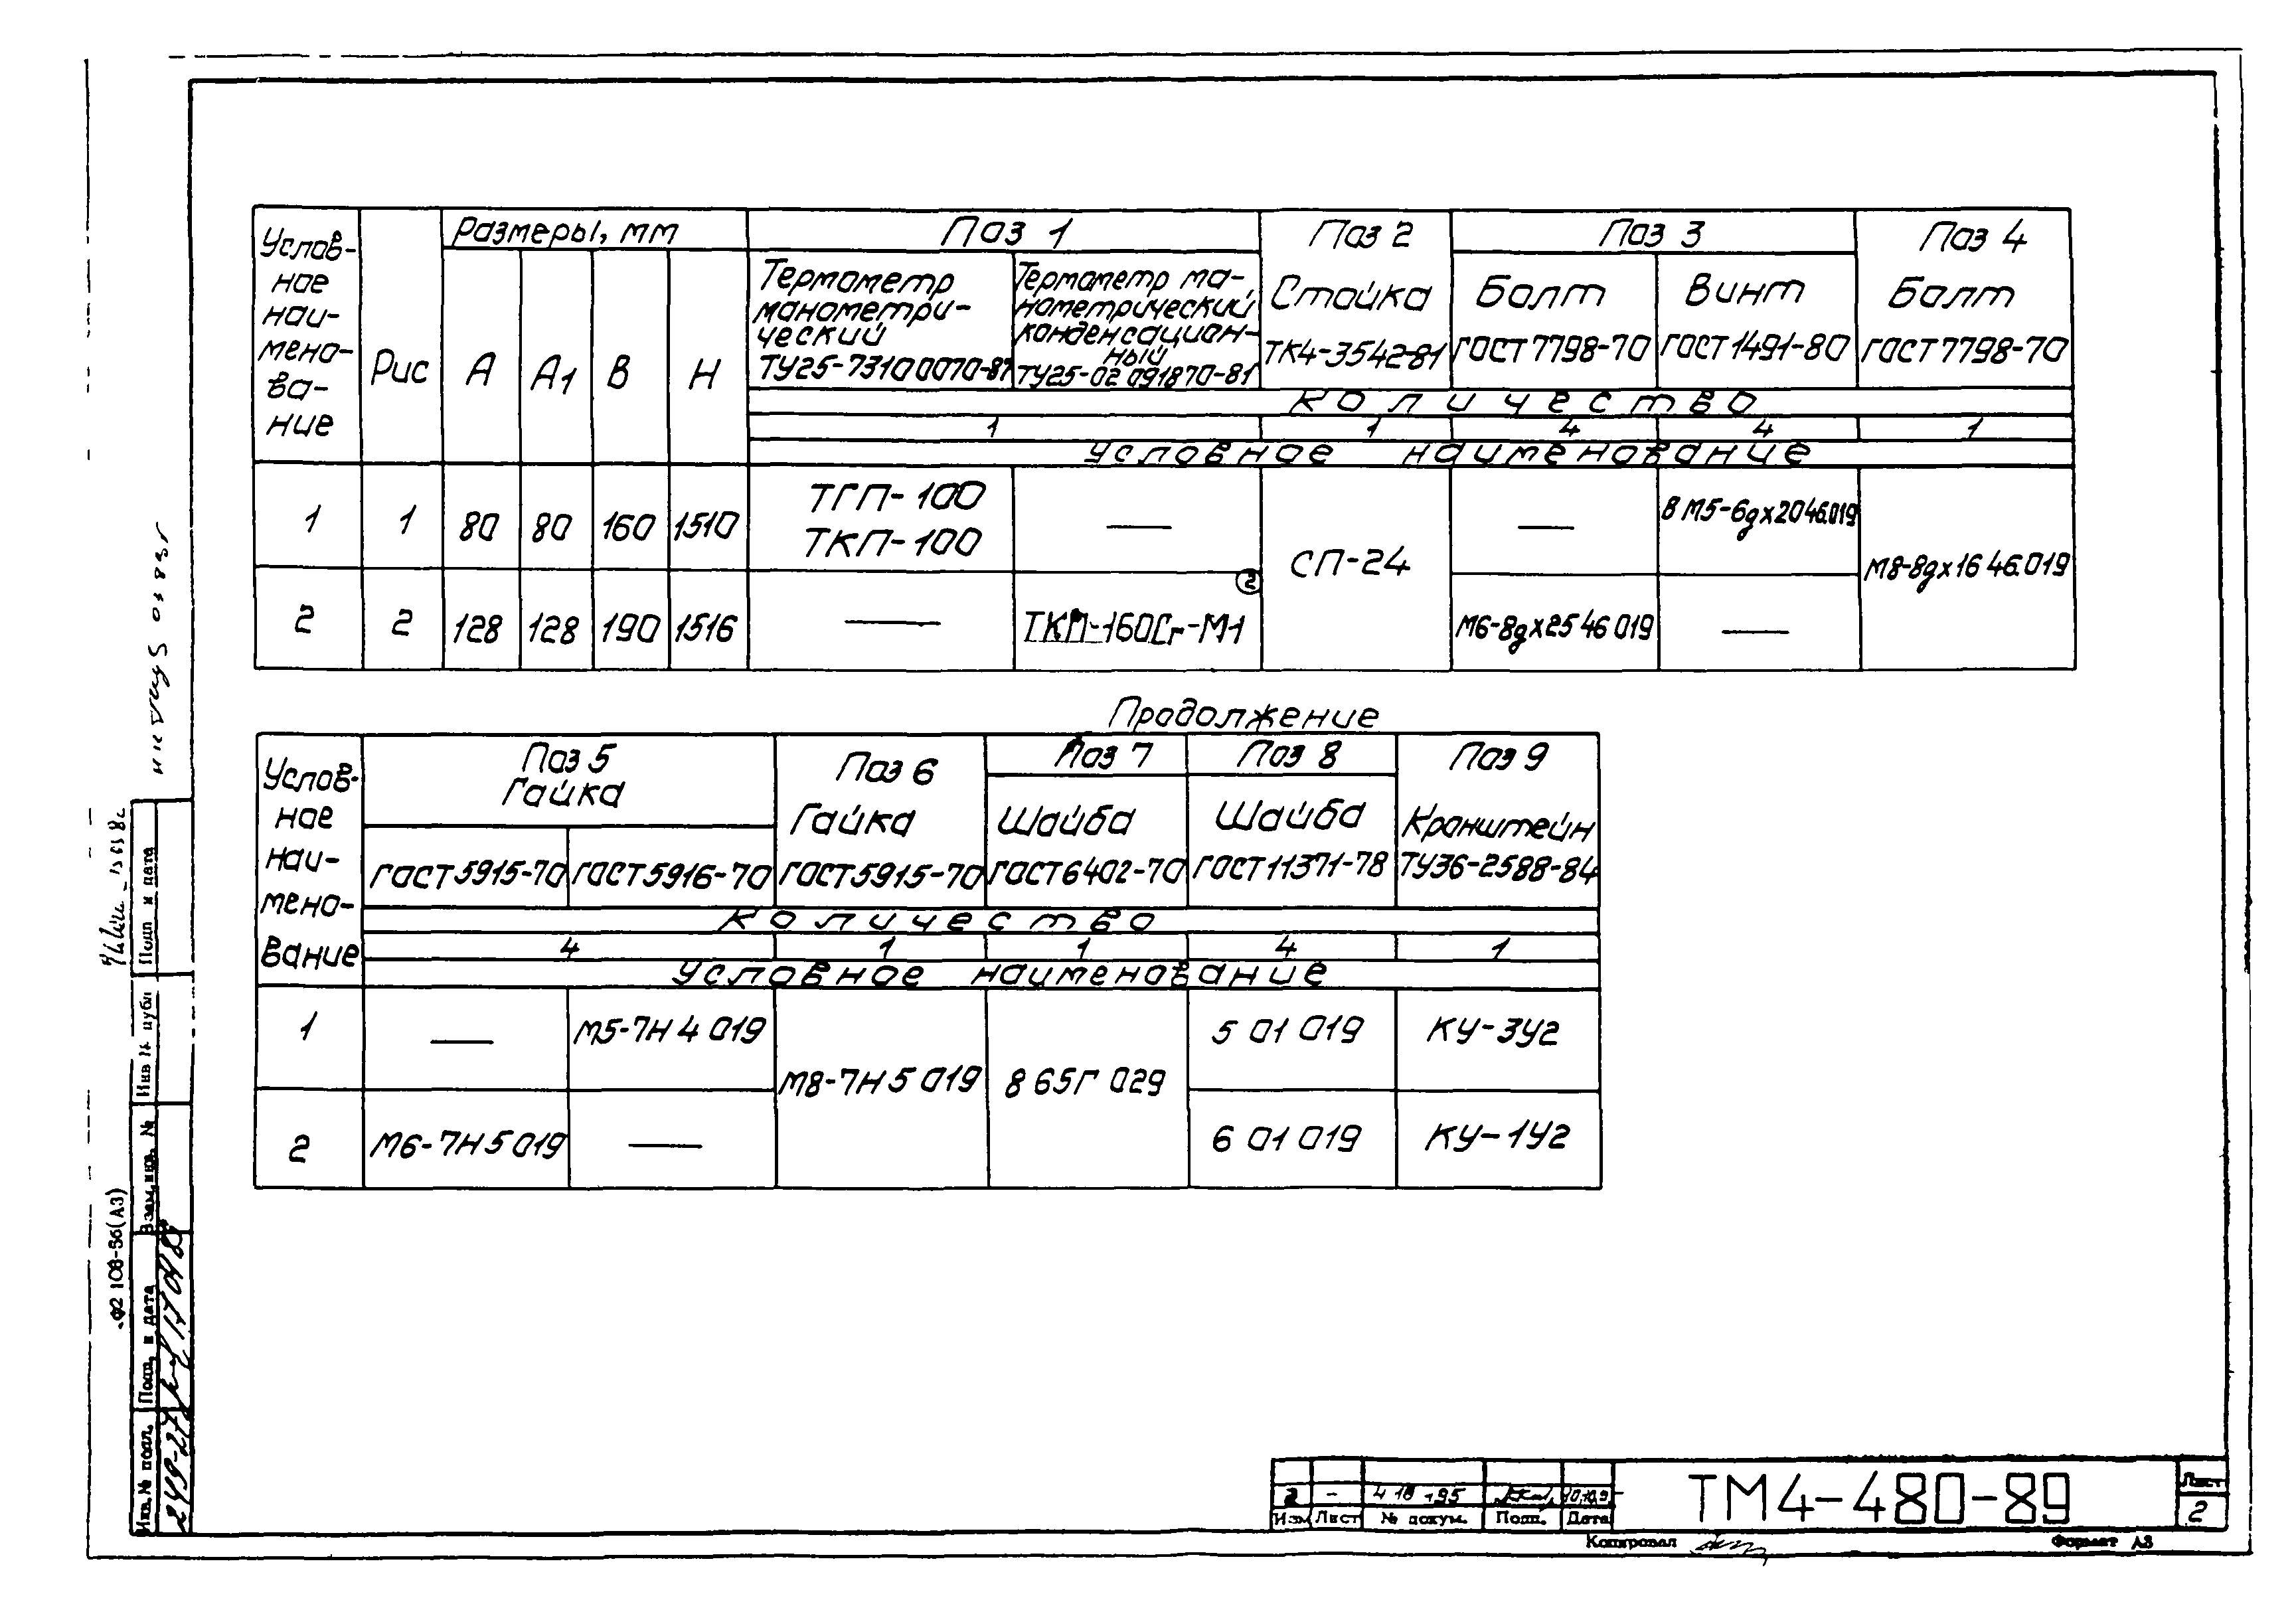 Услов-
ное
наи-
мено-
ва-
ние
Рис
Размеры, мм
А А1 В Н
Поз 1
Термометр
манометри-
ческий
ТУ25-73100070-87
Термометр ма-
нометрический
конденсацион-
ный
ТУ25-02 091870-81
Поз 2
Стойка
ТК4-3542-81
Поз 3
Болт
ГОСТ 7798-70
Винт
ГОСТ 1491-80
Поз 4
Болт
ГОСТ 7798-70
Количество
1 1 4 4 1
Условное наименование
1 1 80 80 160 1510
ТГП-100
ТКП-100
—
СП-24
—
В М5-6gх20 46.019
М8-8gх16 46.019
2 2 128 128 190 1516
—
2
ТКП-160Сг-М1
М6-8gх25 46 019
—
Продолжение
Услов-
ное
наи-
мено-
вание
Поз 5
Гайка
ГОСТ 5915-70 ГОСТ 5916-70
Поз 6
Гайка
ГОСТ 5915-70
Поз 7
Шайба
ГОСТ 6402-70
Поз 8
Шайба
ГОСТ 11371-78
Поз 9
Кронштейн
ТУ36-2588-84
Количество
4 1 1 4 1
Условное наименование
1 — М5-7Н 4 019
М8-7Н 5 019
8 65Г 029
5 01 019
КУ-3У2
2 М6-7Н 5 019 —
6 01 019
КУ-1У2
Подп и дата
Инв № дубл
Взам. инв. №
Подп. и дата
Инв. № подл.
Ф2 108-56(А3)
2 -
Изм Лист № докум. Подп. Дата
ТМ4-480-89
Лист
2
Копировал
Формат А3